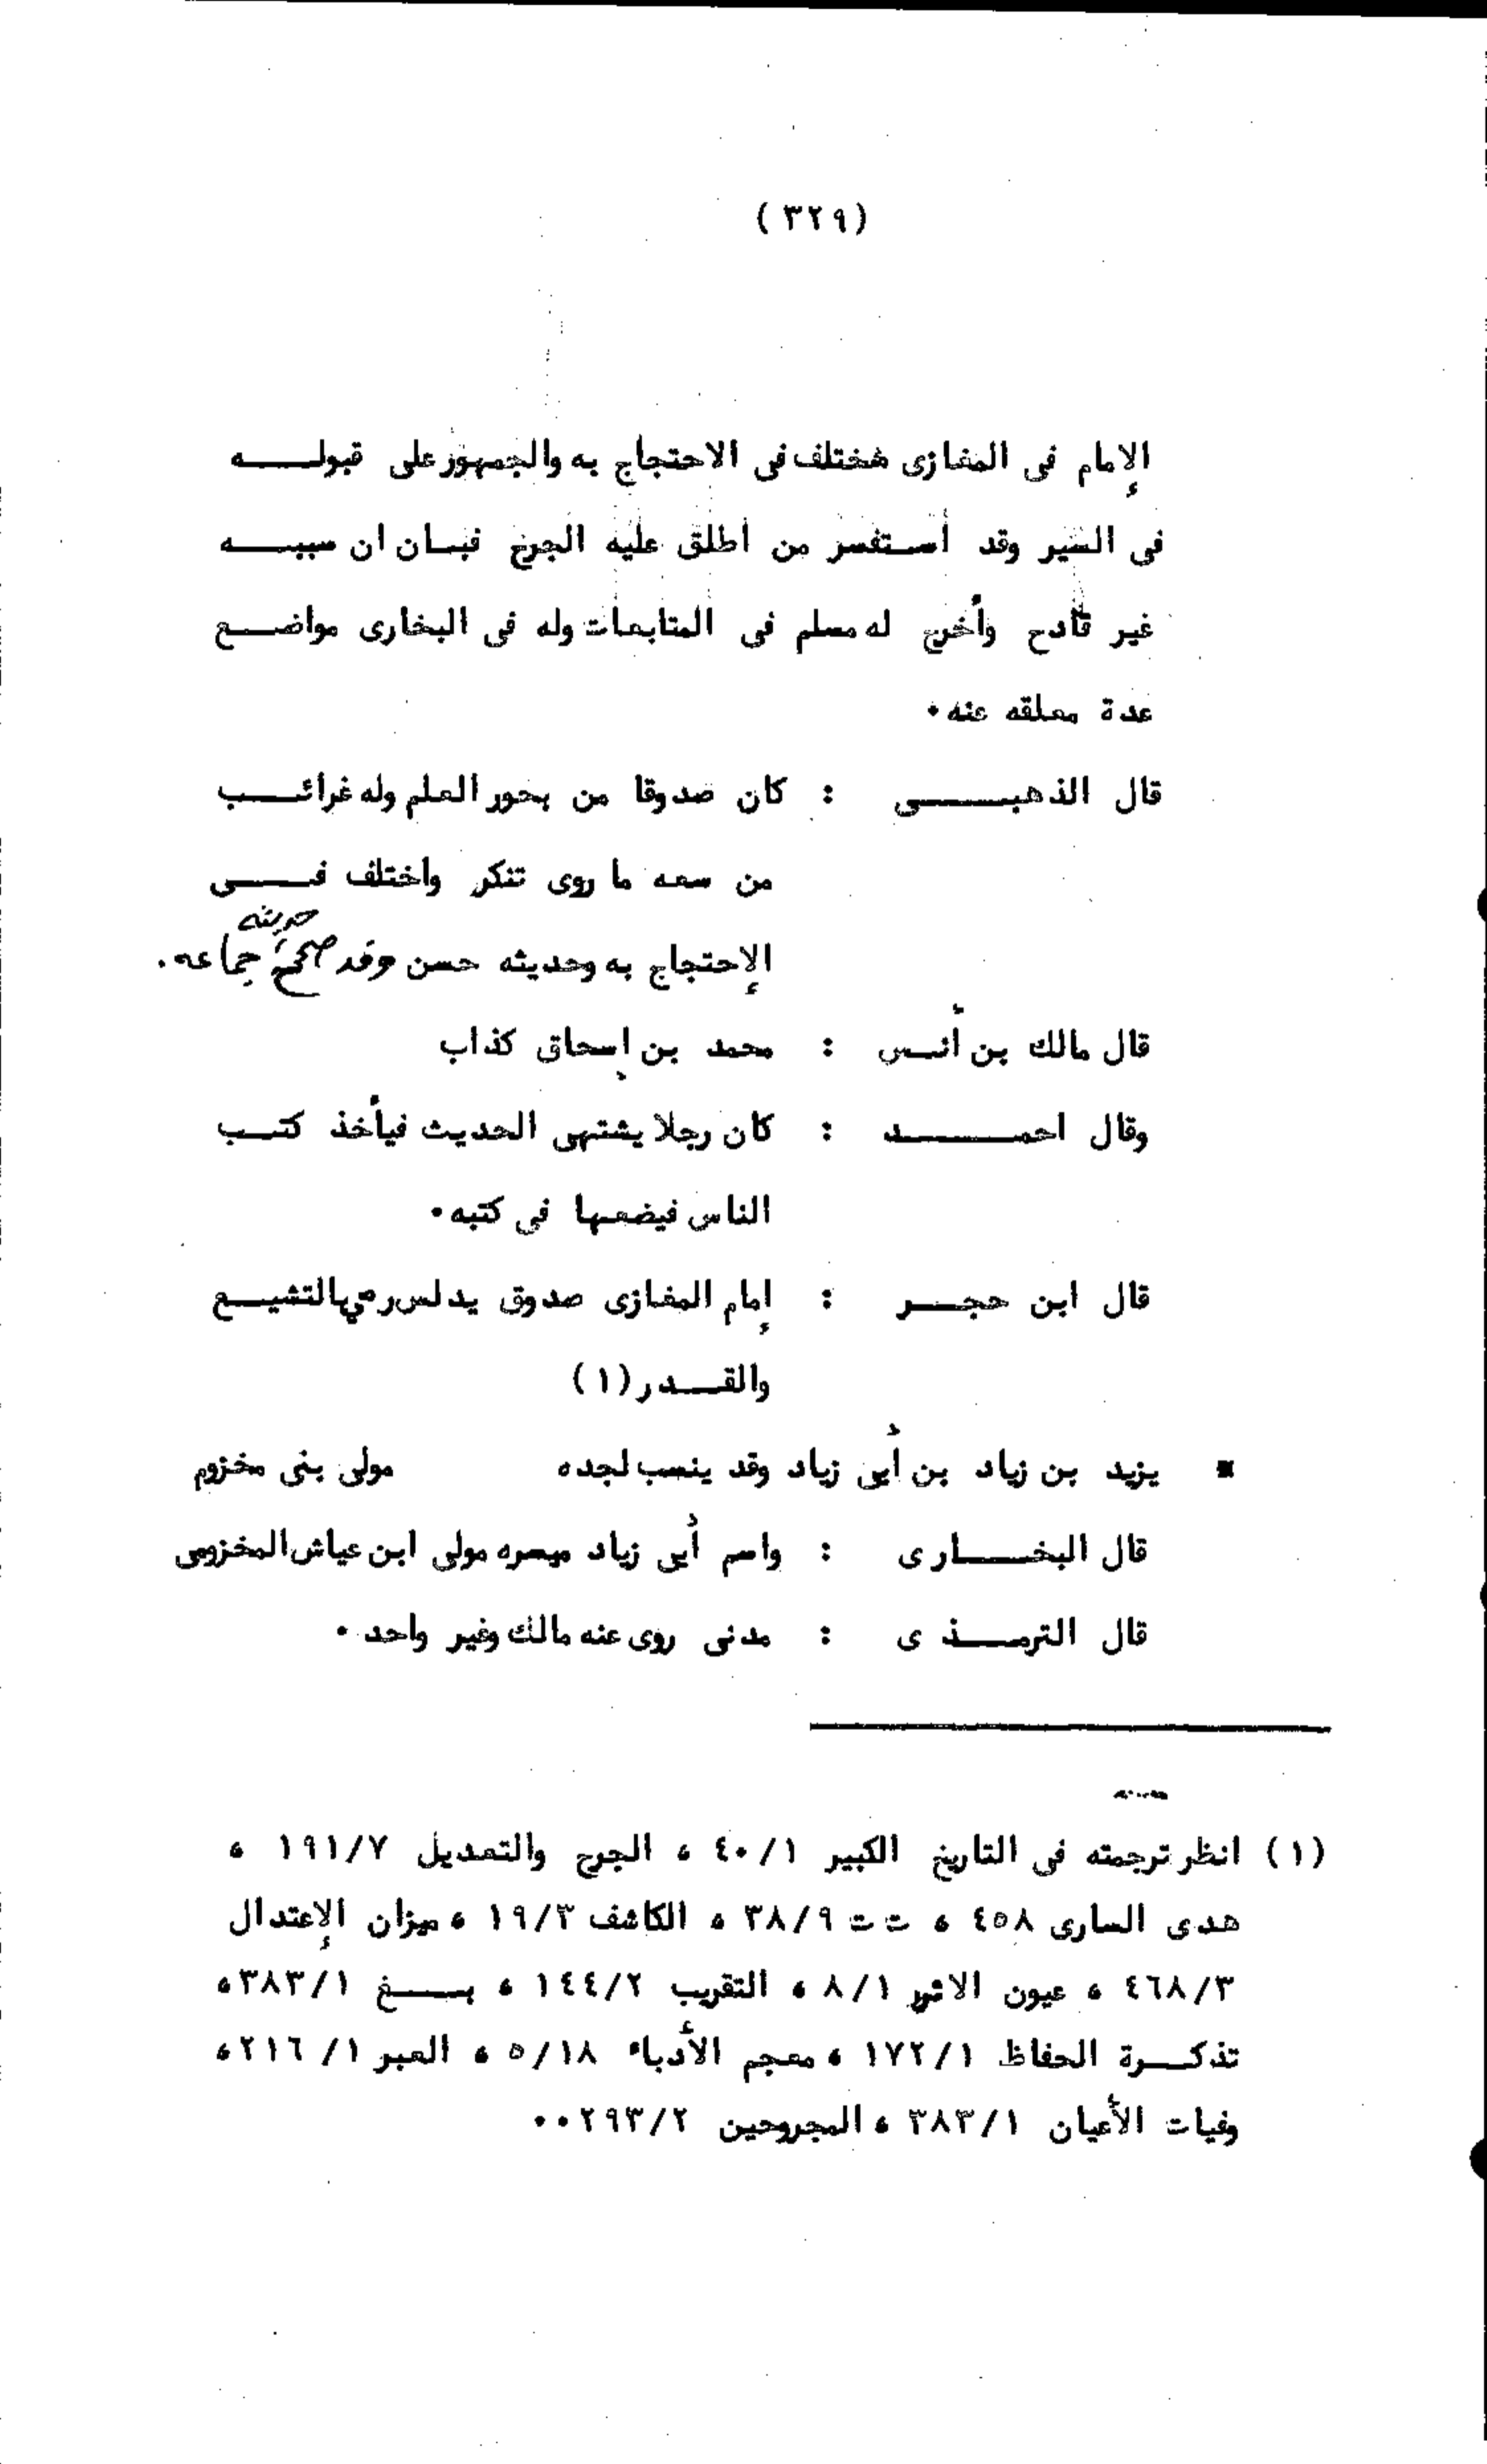 (٣٢٩)
الإمام فى المغازى مختلف فى الاحتجاج به والجمهور على قبوله
فى السير وقد أستفسر من اطلق عليه الجرح فبان ان سببه
غير قادح وأخرج له مسلم فى المتابعات وله فى البخارى مواضع
عدة معلقه عنه .
قال الذهبى : كان صدوقا من بحور العلم وله غرائب
من سعه ما روى تنكر واختلف فى
الإحتجاج به وحديثه حسن وقد صححَ حديثه جماعه .
قال مالك بن أنس : محمد بن إسحاق كذاب
وقال احمد : كان رجلا يشتهى الحديث فيأخذ كتب
الناس فيضعها فى كتبه .
قال ابن حجر : إمام المغازى صدوق يدلس رمي بالتشيع
والقدر (١)
* يزيد بن زياد بن أبى زياد وقد ينسب لجده مولى بنى مخزوم
قال البخارى : واسم أبى زياد ميسره مولى ابن عياش المخزومى
قال الترمذى : مدنى روى عنه مالك وغير واحد .
(١) انظر ترجمته فى التاريخ الكبير ٤٠/١ ، الجرح والتعديل ١٩١/٧ ،
هدى السارى ٤٥٨ ، ت ت ٣٨/٩ ، الكاشف ١٩/٣ ، ميزان الإعتدال
٤٦٨/٣ ، عيون الاثر ٨/١ ، التقريب ١٤٤/٢ ، بغ ٣٨٣/١ ،
تذكرة الحفاظ ١٧٢/١ ، معجم الأدباء ٥/١٨ ، العبر ٢١٦/١ ،
وفيات الأعيان ٣٨٣/١ ، المجروحين ٢٩٣/٢ ..